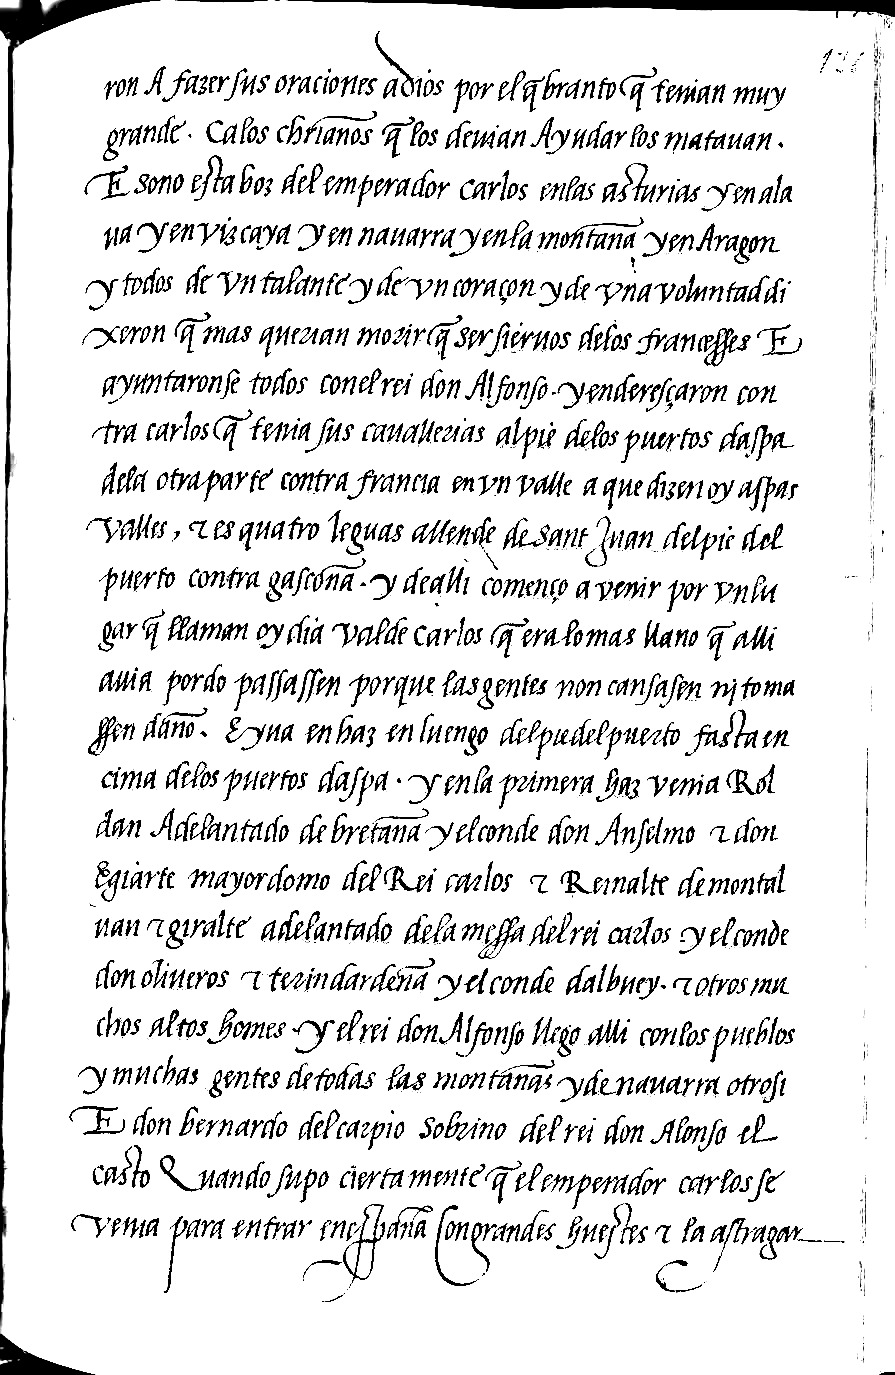 ron A fazer sus oraciones a dios por el q̃branto q̃ tenian muy
grande. Ca los chr̃ianos q̃ los deuian Ayudar los matauan.
E sono esta boz del emperador carlos en las asturias y en ala
ua y en vizcaya y en nauarra y en la montan̄a y en Aragon
y todos de vn talante y de vn coraçon y de vna voluntad di
xeron q̃ mas querian morir q̃ ser sieruos de los francesses E
ayuntaronse todos con el rei don Alfonso. y enderesçaron con
tra carlos q̃ tenia sus cauallerias al pie de los puertos daspa
de la otra parte contra francia en vn valle a que dizen oy aspas
valles, τ es quatro leguas allende de sant Juan del pie del
puerto contra gascon̄a. y de alli començo a venir por vn lu
gar q̃ llaman oy dia val de carlos q̃ era lo mas llano q̃ alli
auia por do passassen porque las gentes non cansasen nj toma
ssen dan̄o. E yua en haz en luengo del pie del puerto fasta en
cima de los puertos daspa. y en la primera haz venia Rol
dan Adelantado de bretan̄a y el conde don Anselmo τ don
Egiarte mayordomo del Rei carlos τ Reinalte de montal
uan τ giralte adelantado de la messa del rei carlos y el conde
don oliueros τ terin darden̄a y el conde dalbuey. τ otros mu
chos altos homes. y el rei don Alfonso llego alli con los pueblos
y muchas gentes de todas las montan̄as y de nauarra otrosi
E don bernardo del carpio sobrino del rei don Alonso el
casto Quando supo ciertamente q̃ el emperador carlos se
venia para entrar en espan̄a con grandes huestes τ la astragar